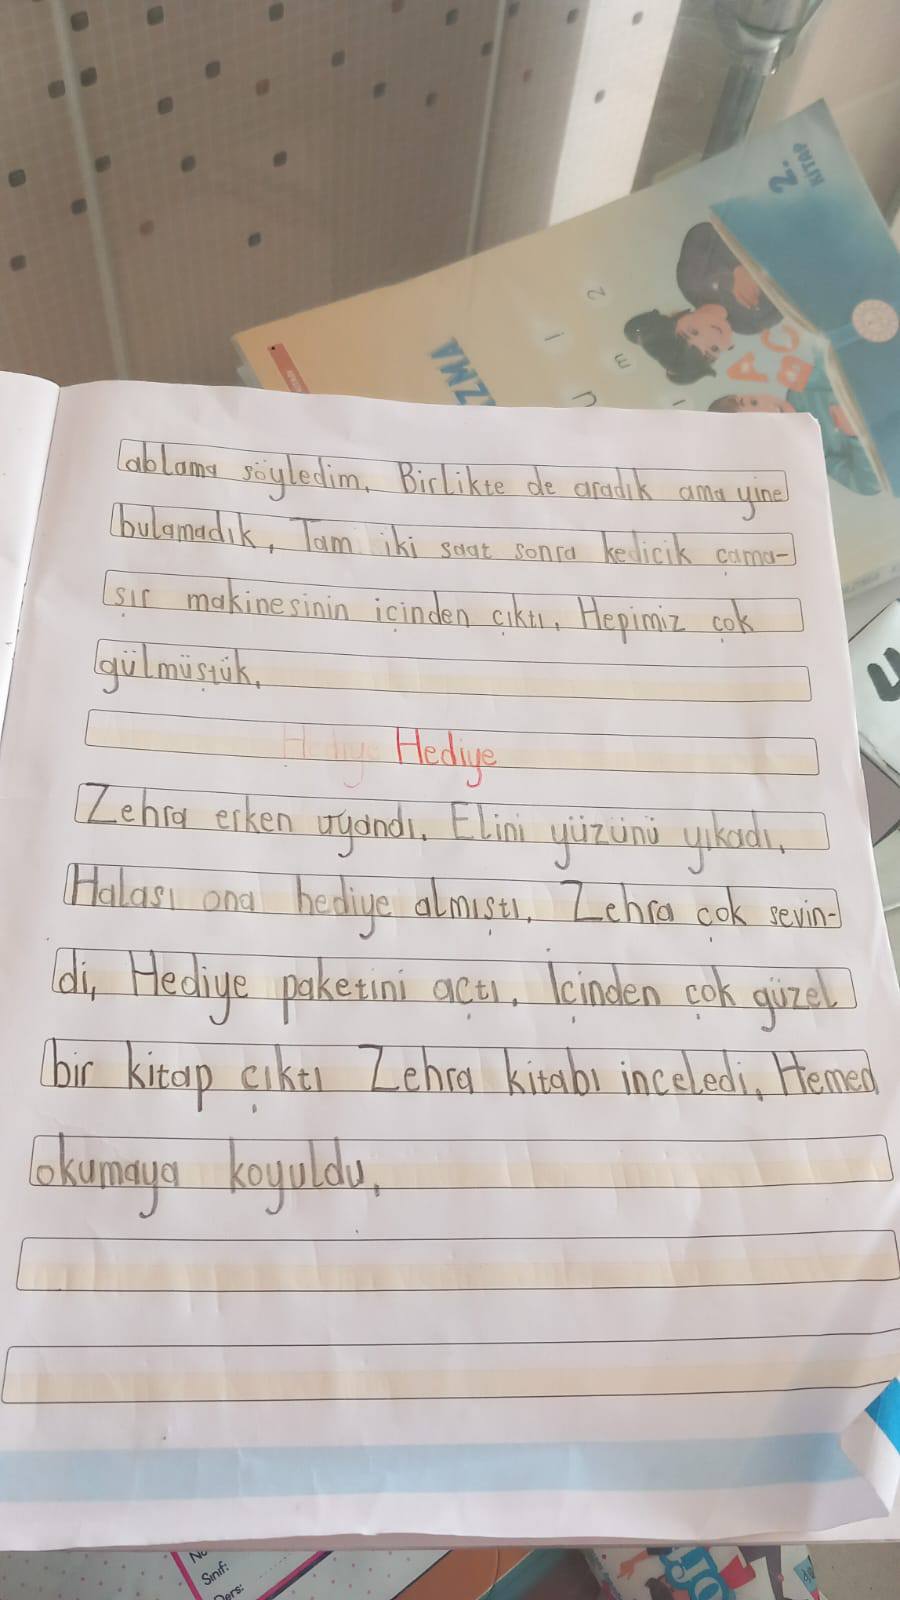 2.
KİTAP
ZMA
ablama söyledim. Birlikte de aradık ama yine
bulamadık. Tam iki saat sonra kedicik çama-
şır makinesinin içinden çıktı. Hepimiz çok
gülmüştük.
Hediye Hediye
Zehra erken uyandı. Elini yüzünü yıkadı.
Halası ona hediye almıştı. Zehra çok sevin-
di, Hediye paketini açtı. İçinden çok güzel
bir kitap çıktı Zehra kitabı inceledi. Hemen
okumaya koyuldu.
Sınıf:
Ders: